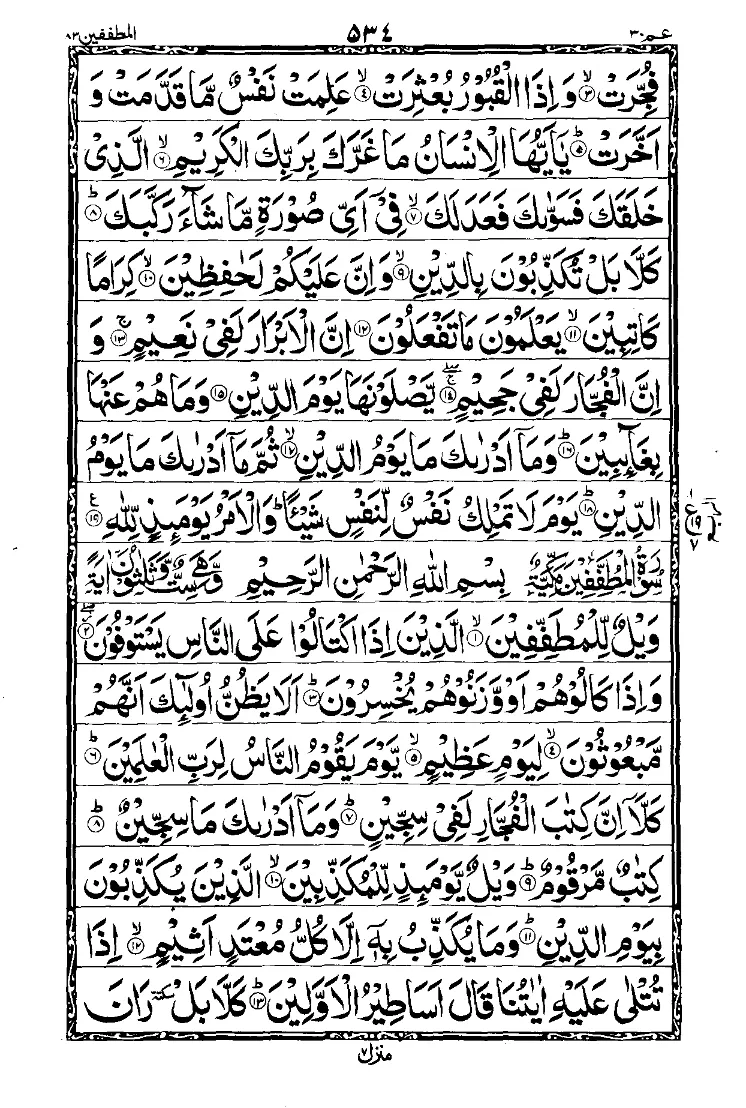 عـم ٣٠ ٥٣٤ المطففين ٨٣
فُجِّرَتْ ۙ﴿٣﴾ وَ اِذَا الْقُبُوْرُ بُعْثِرَتْ ۙ﴿٤﴾ عَلِمَتْ نَفْسٌ مَّا قَدَّمَتْ وَ
اَخَّرَتْ ؕ﴿٥﴾ يٰۤاَيُّهَا الْاِنْسَانُ مَا غَرَّكَ بِرَبِّكَ الْكَرِيْمِ ۙ﴿٦﴾ الَّذِىْ
خَلَقَكَ فَسَوّٰىكَ فَعَدَلَكَ ۙ﴿٧﴾ فِىْۤ اَىِّ صُوْرَةٍ مَّا شَآءَ رَكَّبَكَ ؕ﴿٨﴾
كَلَّا بَلْ تُكَذِّبُوْنَ بِالدِّيْنِ ۙ﴿٩﴾ وَ اِنَّ عَلَيْكُمْ لَحٰفِظِيْنَ ۙ﴿١٠﴾ كِرَامًا
كَاتِبِيْنَ ۙ﴿١١﴾ يَعْلَمُوْنَ مَا تَفْعَلُوْنَ ﴿١٢﴾ اِنَّ الْاَبْرَارَ لَفِىْ نَعِيْمٍ ۚ﴿١٣﴾ وَ
اِنَّ الْفُجَّارَ لَفِىْ جَحِيْمٍ ۚۖ﴿١٤﴾ يَّصْلَوْنَهَا يَوْمَ الدِّيْنِ ﴿١٥﴾ وَمَا هُمْ عَنْهَا
بِغَآئِبِيْنَ ؕ﴿١٦﴾ وَمَاۤ اَدْرٰىكَ مَا يَوْمُ الدِّيْنِ ۙ﴿١٧﴾ ثُمَّ مَاۤ اَدْرٰىكَ مَا يَوْمُ
الدِّيْنِ ؕ﴿١٨﴾ يَوْمَ لَا تَمْلِكُ نَفْسٌ لِّنَفْسٍ شَيْـًٔا ؕ وَالْاَمْرُ يَوْمَئِذٍ لِّلّٰهِ ﴿١٩﴾ ع
سُوْرَةُ الْمُطَفِّفِيْنَ مَكِّيَّةٌ بِسْمِ اللّٰهِ الرَّحْمٰنِ الرَّحِيْمِ وَّهِىَ سِتٌّ وَّثَلٰثُوْنَ اٰيَةً
وَيْلٌ لِّلْمُطَفِّفِيْنَ ۙ﴿١﴾ الَّذِيْنَ اِذَا اكْتَالُوْا عَلَى النَّاسِ يَسْتَوْفُوْنَ ﴿٢﴾
وَ اِذَا كَالُوْهُمْ اَوْ وَّزَنُوْهُمْ يُخْسِرُوْنَ ؕ﴿٣﴾ اَلَا يَظُنُّ اُولٰٓئِكَ اَنَّهُمْ
مَّبْعُوْثُوْنَ ۙ﴿٤﴾ لِيَوْمٍ عَظِيْمٍ ۙ﴿٥﴾ يَّوْمَ يَقُوْمُ النَّاسُ لِرَبِّ الْعٰلَمِيْنَ ؕ﴿٦﴾
كَلَّاۤ اِنَّ كِتٰبَ الْفُجَّارِ لَفِىْ سِجِّيْنٍ ؕ﴿٧﴾ وَمَاۤ اَدْرٰىكَ مَا سِجِّيْنٌ ؕ﴿٨﴾
كِتٰبٌ مَّرْقُوْمٌ ؕ﴿٩﴾ وَيْلٌ يَّوْمَئِذٍ لِّلْمُكَذِّبِيْنَ ۙ﴿١٠﴾ الَّذِيْنَ يُكَذِّبُوْنَ
بِيَوْمِ الدِّيْنِ ؕ﴿١١﴾ وَمَا يُكَذِّبُ بِهٖۤ اِلَّا كُلُّ مُعْتَدٍ اَثِيْمٍ ۙ﴿١٢﴾ اِذَا
تُتْلٰى عَلَيْهِ اٰيٰتُنَا قَالَ اَسَاطِيْرُ الْاَوَّلِيْنَ ؕ﴿١٣﴾ كَلَّا بَلْ سكتة رَانَ
منزل ٧
ع ١٩ ٧